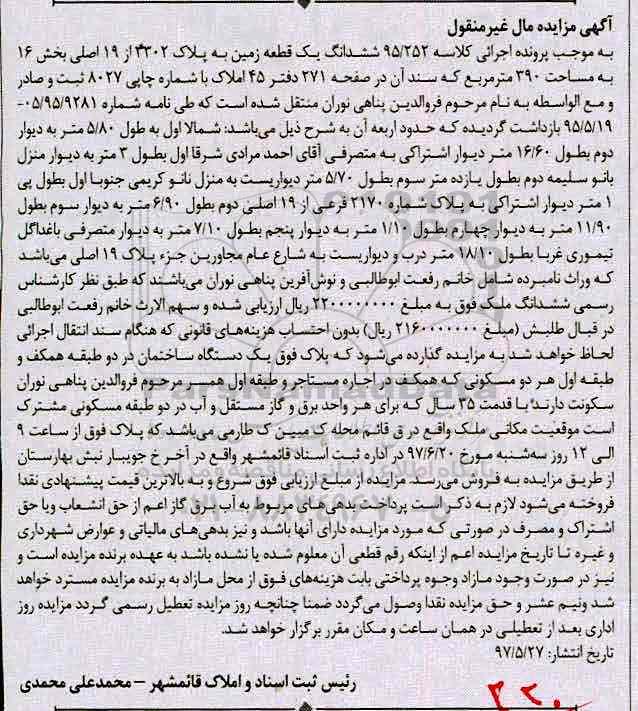 آگهی مزایده مال غیرمنقول
به موجب پرونده اجرائی کلاسه ۹۵/۲۵۲ ششدانگ یک قطعه زمین به پلاک ۴۳۰۲ از ۱۹ اصلی بخش ۱۶
به مساحت ۳۹۰ مترمربع که سند آن در صفحه ۲۷۱ دفتر ۴۵ املاک با شماره چاپی ۸۰۲۷ ثبت و صادر
و مع الواسطه به نام مرحوم فروالدین پناهی نوران منتقل شده است که طی نامه شماره ۰۵/۹۵/۹۲۸۱-
۹۵/۵/۱۹ بازداشت گردیده که حدود اربعه آن به شرح ذیل می‌باشد: شمالا اول به طول ۵/۸۰ متر به دیوار
دوم بطول ۱۶/۶۰ متر دیوار اشتراکی به متصرفی آقای احمد مرادی شرقا اول بطول ۳ متر به دیوار منزل
بانو سلیمه دوم بطول یازده متر سوم بطول ۵/۷۰ متر دیواریست به منزل نانو کریمی جنوبا اول بطول پی
۱ متر دیوار اشتراکی به پلاک شماره ۲۱۷۰ فرعی از ۱۹ اصلی دوم بطول ۶/۹۰ متر به دیوار سوم بطول
۱۱/۹۰ متر به دیوار چهارم بطول ۱/۱۰ متر به دیوار پنجم بطول ۷/۱۰ متر به دیوار متصرفی باغداگل
تیموری غربا بطول ۱۸/۱۰ متر درب و دیواریست به شارع عام مجاورین جزء پلاک ۱۹ اصلی می‌باشد
که وراث نامبرده شامل خانم رفعت ابوطالبی و نوش‌آفرین پناهی نوران می‌باشند که طبق نظر کارشناس
رسمی ششدانگ ملک فوق به مبلغ ۲۲۰۰۰۰۰۰۰۰ ریال ارزیابی شده و سهم الارث خانم رفعت ابوطالبی
در قبال طلبش (مبلغ ۲۱۶۰۰۰۰۰۰۰ ریال) بدون احتساب هزینه‌های قانونی که هنگام سند انتقال اجرائی
لحاظ خواهد شد به مزایده گذارده می‌شود که پلاک فوق یک دستگاه ساختمان در دو طبقه همکف و
طبقه اول هر دو مسکونی که همکف در اجاره مستاجر و طبقه اول همسر مرحوم فروالدین پناهی نوران
سکونت دارند با قدمت ۳۵ سال که برای هر واحد برق و گاز مستقل و آب در دو طبقه مسکونی مشترک
است موقعیت مکانی ملک واقع در ق قائم محله ک مبین ک طارمی می‌باشد که پلاک فوق از ساعت ۹
الی ۱۲ روز سه‌شنبه مورخ ۹۷/۶/۲۰ در اداره ثبت اسناد قائمشهر واقع در آخر خ جویبار نبش بهارستان
از طریق مزایده به فروش می‌رسد. مزایده از مبلغ ارزیابی فوق شروع و به بالاترین قیمت پیشنهادی نقدا
فروخته می‌شود لازم به ذکر است پرداخت بدهی‌های مربوط به آب برق گاز اعم از حق انشعاب ویا حق
اشتراک و مصرف در صورتی که مورد مزایده دارای آنها باشد و نیز بدهی‌های مالیاتی و عوارض شهرداری
و غیره تا تاریخ مزایده اعم از اینکه رقم قطعی آن معلوم شده یا نشده باشد به عهده برنده مزایده است و
نیز در صورت وجود مازاد وجوه پرداختی بابت هزینه‌های فوق از محل مازاد به برنده مزایده مسترد خواهد
شد ونیم عشر و حق مزایده نقدا وصول می‌گردد ضمنا چنانچه روز مزایده تعطیل رسمی گردد مزایده روز
اداری بعد از تعطیلی در همان ساعت و مکان مقرر برگزار خواهد شد.
تاریخ انتشار: ۹۷/۵/۲۷
رئیس ثبت اسناد و املاک قائمشهر – محمدعلی محمدی